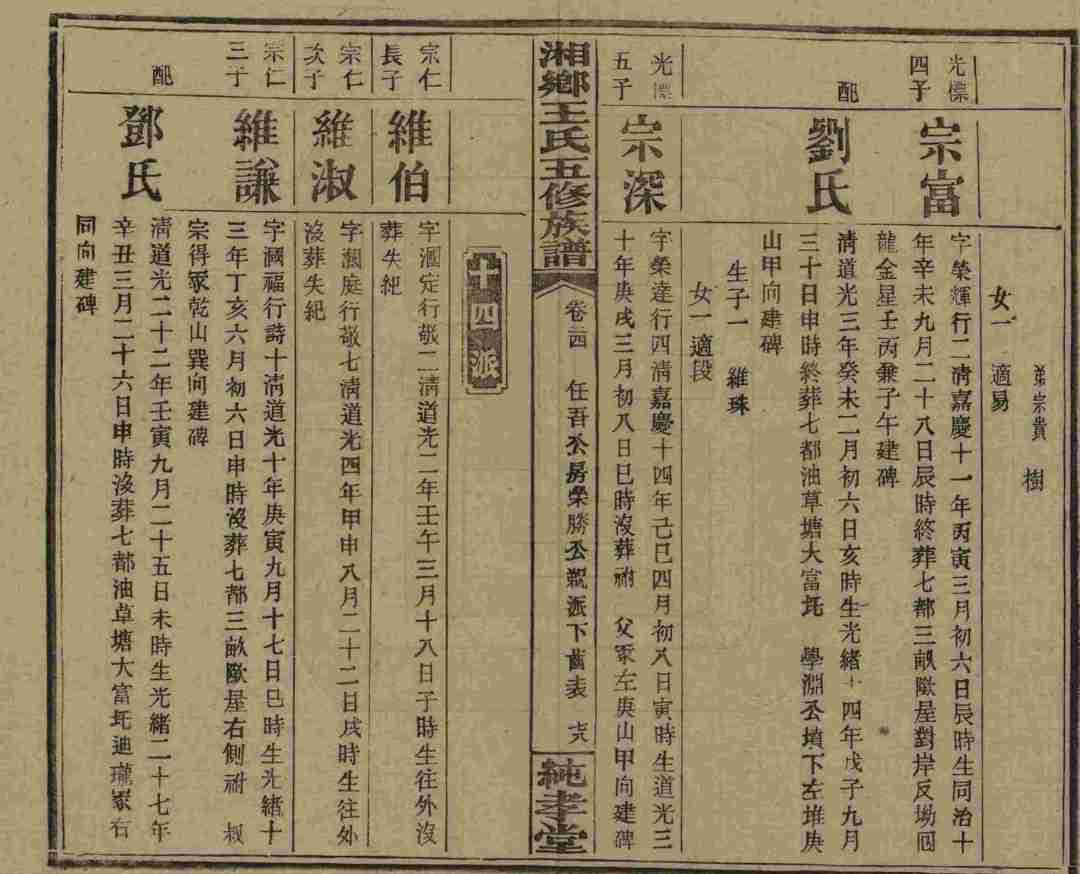 弟宗貴　樹
女一　適易
光僄四子
宗富
字榮輝行二清嘉慶十一年丙寅三月初六日辰時生同治十
年辛未九月二十八日辰時終葬七都三畝歐屋對岸反坳囘
龍金星壬丙兼子午建碑
配
劉氏
清道光三年癸未二月初六日亥時生光緒十四年戊子九月
三十日申時終葬七都油草塘大富坵　學淵公墳下左堆庚
山甲向建碑
生子一　維珠
女一適段
光僄五子
宗深
字榮達行四清嘉慶十四年己巳四月初八日寅時生道光三
十年庚戌三月初八日巳時沒葬祔　父冢左庚山甲向建碑
湘鄉王氏五修族譜
卷二四　任吾公房榮勝公覲派下齒表　六
純孝堂
十四派
宗仁長子
維伯
字
定行敬二清道光二年壬午三月十八日子時生往外沒
葬失紀
宗仁次子
維淑
字
庭行敬七清道光四年甲申八月二十二日戌時生往外
沒葬失紀
宗仁三子
維謙
字
福行詩十清道光十年庚寅九月十七日巳時生光緒十
三年丁亥六月初六日申時沒葬七都三畝歐屋右側祔　叔
宗得冢乾山巽向建碑
配
鄧氏
清道光二十二年壬寅九月二十五日未時生光緒二十七年
辛丑三月二十六日申時沒葬七都油草塘大富坵迪瓏冢右
同向建碑